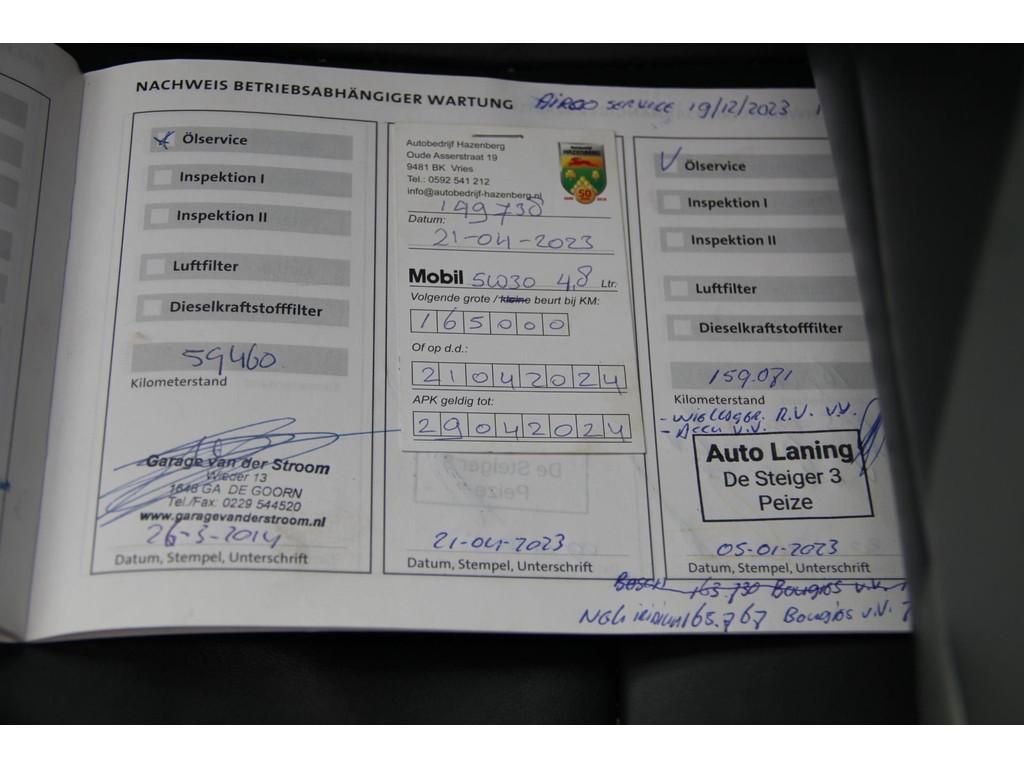 NACHWEIS BETRIEBSABHÄNGIGER WARTUNG
AIRCO SERVICE 19/12/2023
Ölservice
Inspektion I
Inspektion II
Luftfilter
Dieselkraftstofffilter
59460
Kilometerstand
Garage van der Stroom
Wieder 13
1648 GA DE GOORN
Tel./Fax: 0229 544520
www.garagevanderstroom.nl
26-3-2014
Datum, Stempel, Unterschrift
Autobedrijf Hazenberg
Oude Asserstraat 19
9481 BK Vries
Tel.: 0592 541 212
info@autobedrijf-hazenberg.nl
HAZENBERG
50
149730
Datum:
21-04-2023
Mobil 5W30 4,8 Ltr.
Volgende grote / kleine beurt bij KM:
165000
Of op d.d.:
21042024
APK geldig tot:
29042024
De Steiger
Peize
21-04-2023
Datum, Stempel, Unterschrift
Ölservice
Inspektion I
Inspektion II
Luftfilter
Dieselkraftstofffilter
159.071
Kilometerstand
R.V. V.V.
- Accu V.V.
Auto Laning
De Steiger 3
Peize
05-01-2023
Datum, Stempel, Unterschrift
Bosch 163.730 Bougies v.v.
NGK iridium 165.767 Bougies v.v.